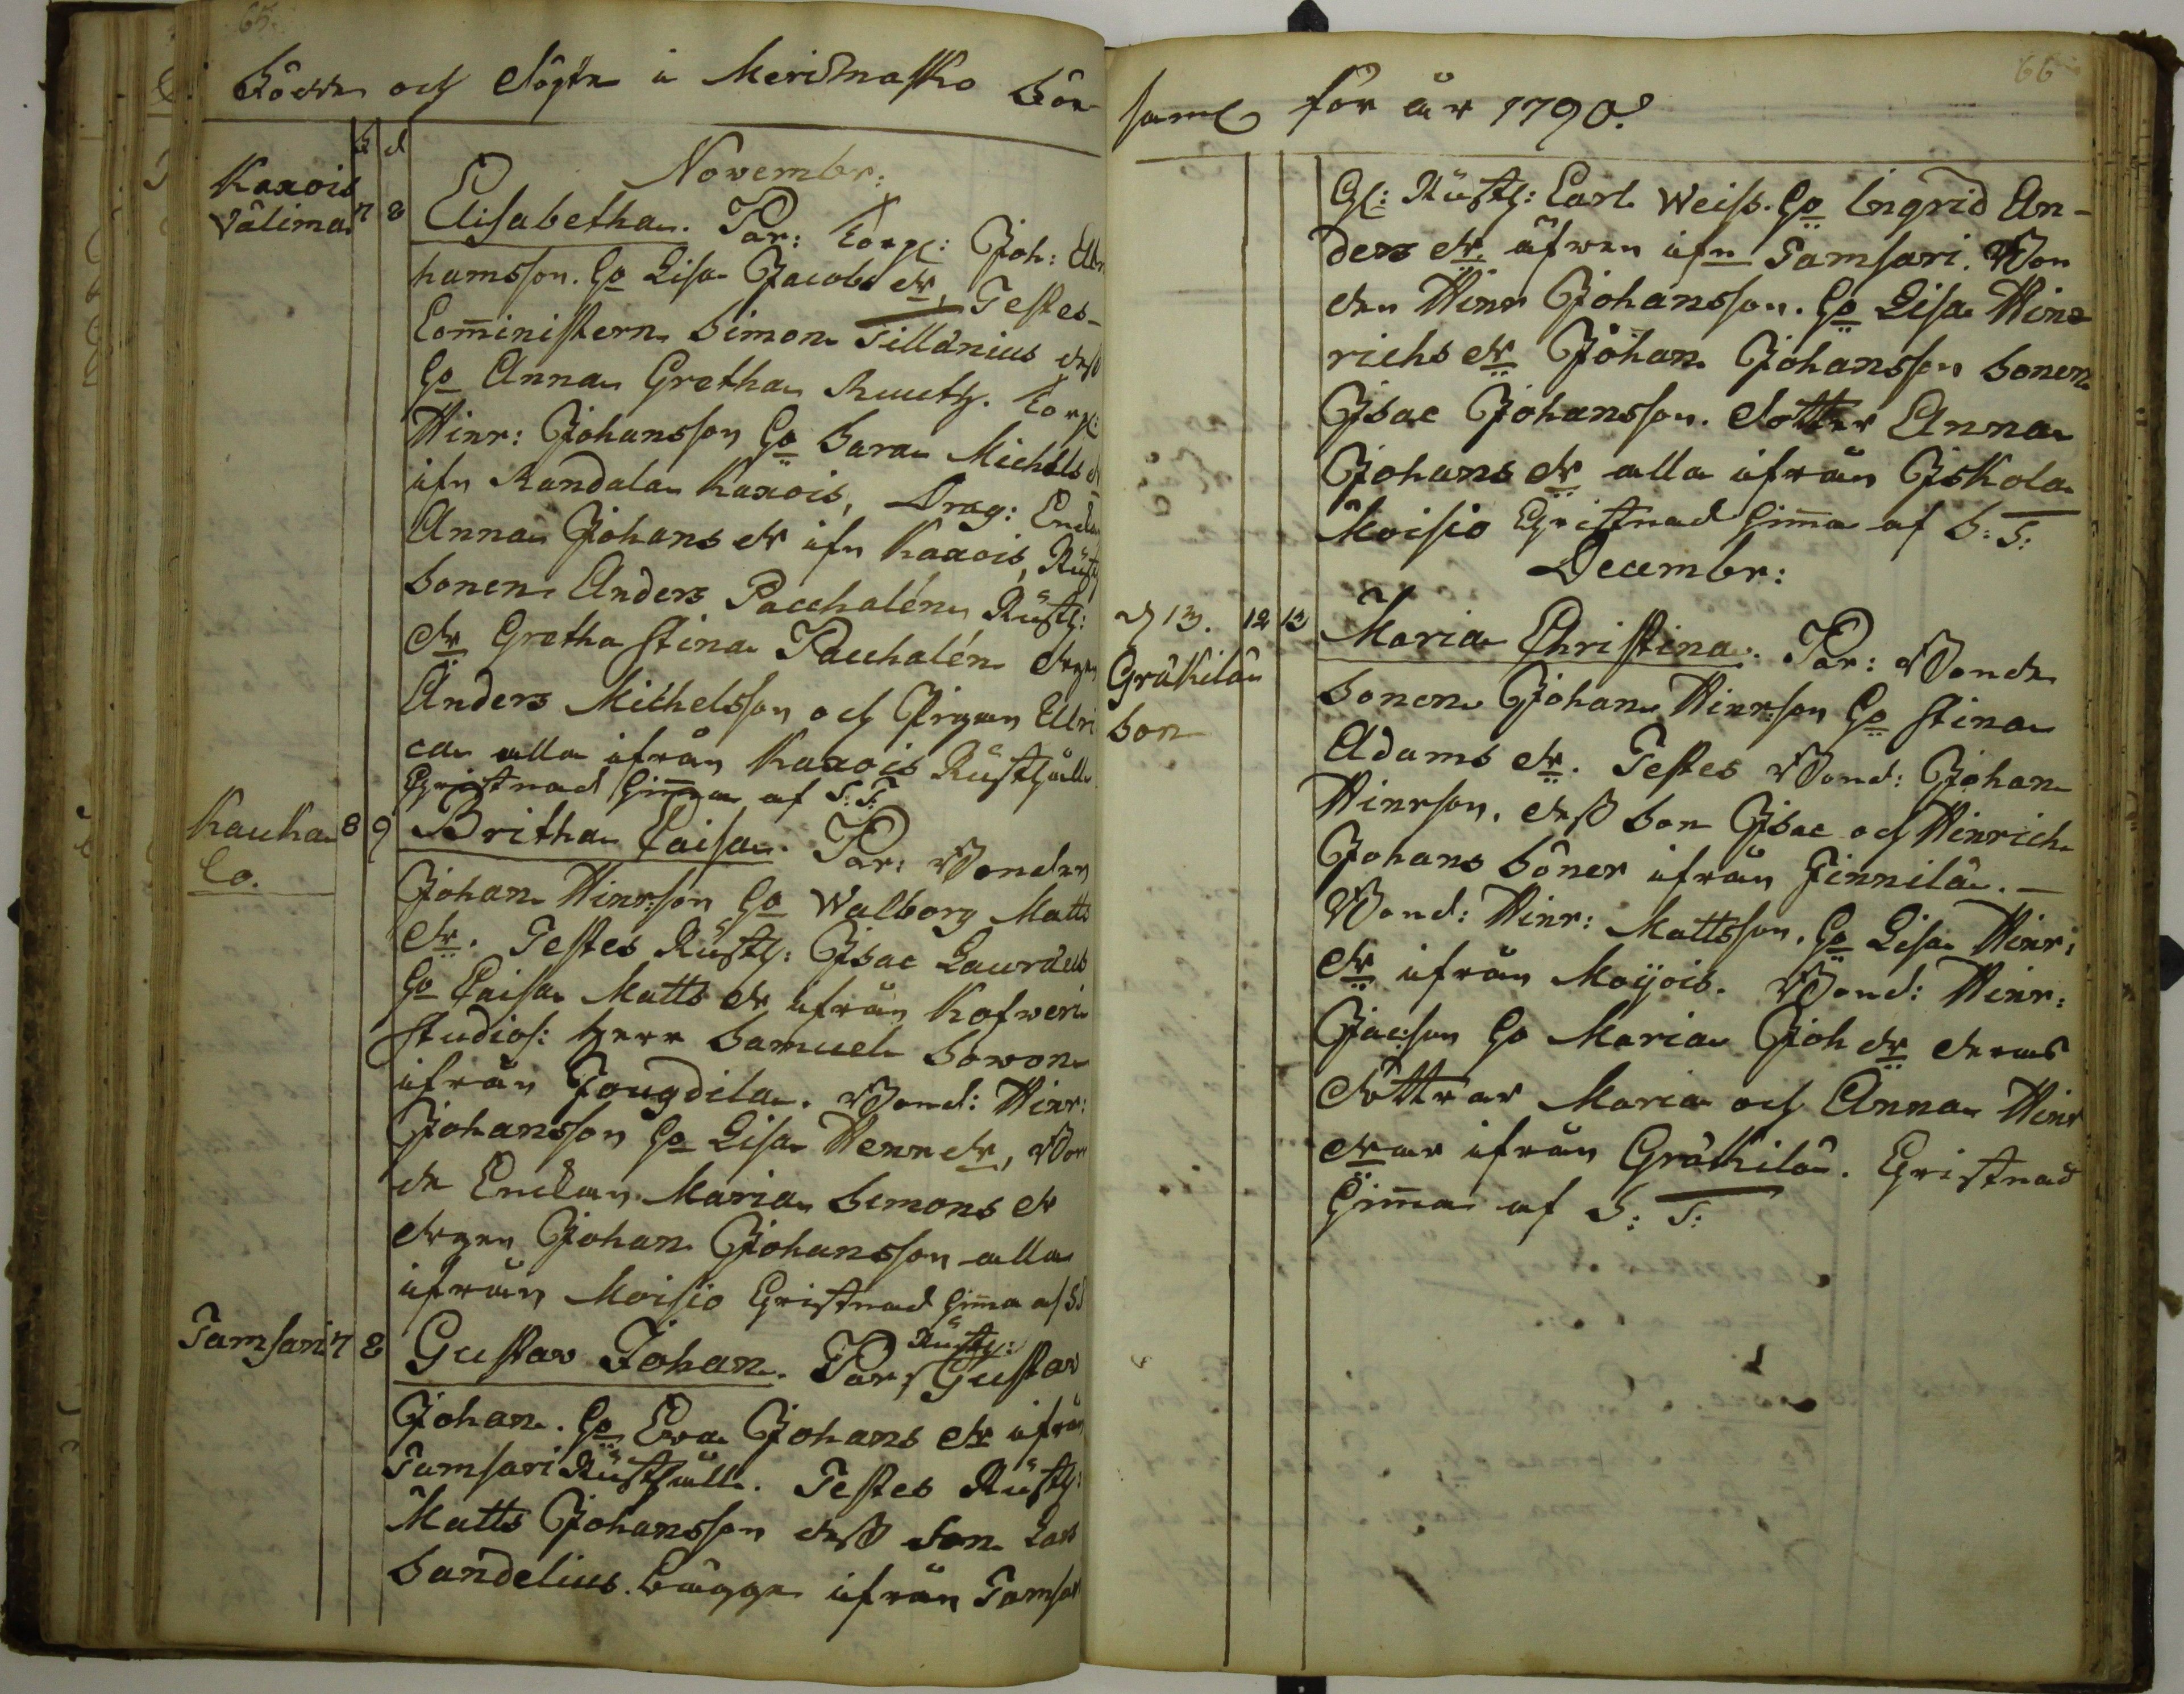 65.
Födde och döpte i Merimasko För
f d
Novembr:
Kaxois
Välimaa 7 8 Elisabetha. Par: Torp: Joh: Abr
hamsson. Ho Lisa Jacobs dr, Testes
Comministern Simon Tillänius dess
Ho Anna Gretha Ruuth. Torp:
Hinr: Johansson Ho Sara Michels d
ifn Randala Kaxois, Drag: Enck
Anna Johans dr ifn Kaxois, Rüsth
sonen Anders Pacchalén Rüsth:
dr Gretha Stina Pacchalén drgn
Anders Michelsson och Pigan Ulri
ca alla ifrån Kaxois Rüsthåll
Christnad hemma af S: T:
Kauha 8 9 Britha Caisa. Par: Bonden
Co.
Johan Hinrson Ho Walborg Matts
dr. Testes Rüsth: Isac Laurells
Ho Caisa Matts dr ifrån Kafweri
Studios: Herr Samuel Sowon
ifrån Fougdila. Bond: Hinr:
Johansson Ho Lisa Henr dr, Bon
de Enckan Maria Simons dr
drgen Johan Johansson alla
ifrån Moisio Christnad hemma af S
Tamsari 7 8 Gustav Johan. Par: Rüsth: Gustav
Johan. Ho Eva Johans dr ifrån
Tamsari Rüsthåll. Testes Rüsth:
Matts Johansson dess Son Lars
Sandelius. bägge ifrån Tamsar
66
saml för år 1790.
Gl: Rüsth: Carl Weiss. Ho Ingrid An-
ders dr. äfwen ifn Tamsari. Bon
den Hinr Johansson. Ho Lisa Hin
richs dr Johan Johansson Sonen
Isac Johansson. dotter Anna
Johans dr alla ifrån Iskola
Moisio Christnad hemma af S: T:
Decembr:
d 13. 12 13 Maria Christina. Par: Bonde
Gräkilä
bon
sonen Johan Hinrson Ho Stina
Adams dr. Testes Bond: Johan
Hinrson, dess Son Isac och Hinrich
Johans Söner ifrån Finnilä.
Bond: Hinr: Mattsson, Ho Lisa Hinr:
dr ifrån Moijois. Bond: Hinr:
Jacson Ho Maria Joh dr deras
döttrar Maria och Anna Hinr
drar ifrån Gräkilä. Christnad
hemma af S: T: